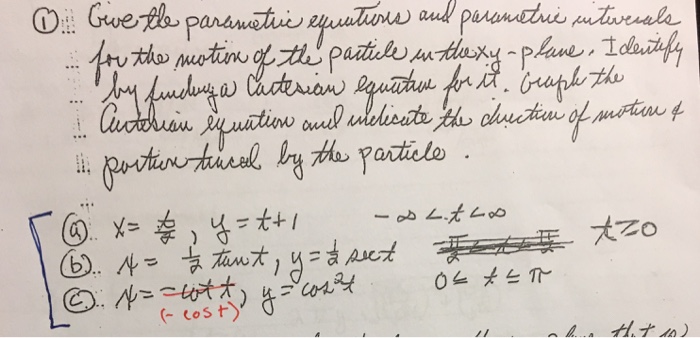 ① Give the parametric equations and parametric intervals
for the motion of the particle in the xy-plane. Identify
by finding a Cartesian equation for it. Graph the
Cartesian equation and indicate the direction of motion &
portion traced by the particle.
(a). x = t/2, y = t+1 -∞ < t < ∞
(b).. x = 1/2 tan t, y = 1/2 sec t t≥0
(c).. x = -cot t, y = cos²t 0 ≤ t ≤ π
(-cos t)